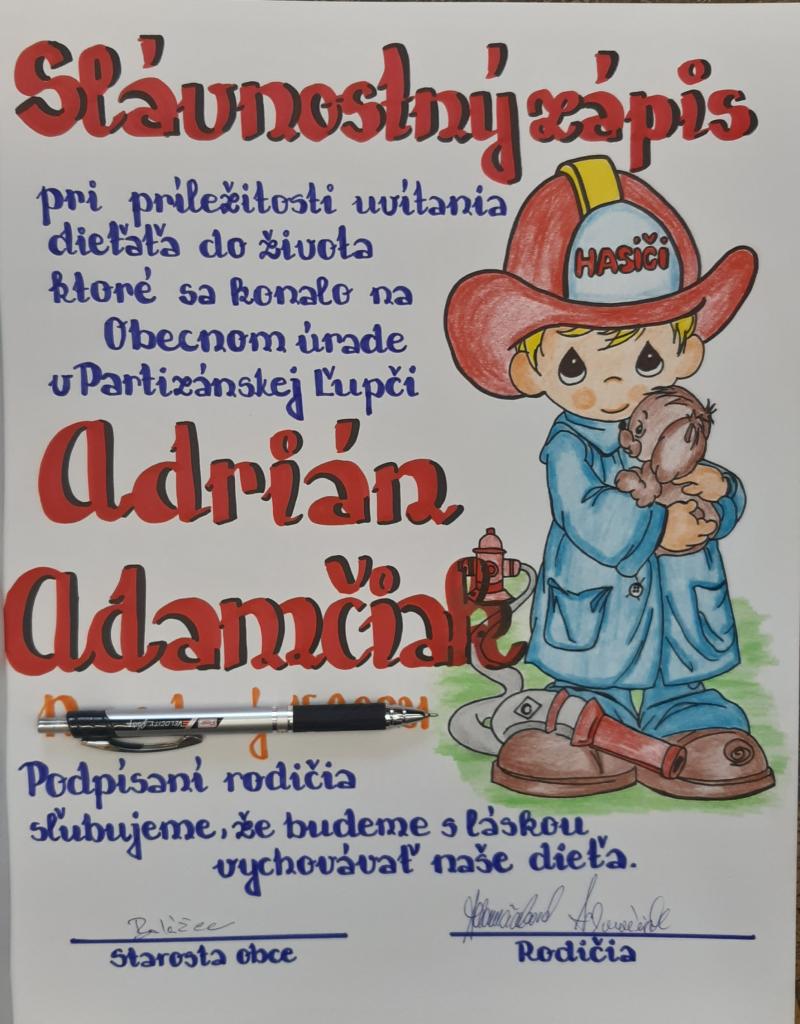 Slávnostný zápis
pri príležitosti uvítania
dieťaťa do života
ktoré sa konalo na
Obecnom úrade
v Partizánskej Ľupči
HASIČI
Adrián
Adamčiak
VELOCITY
Podpísaní rodičia
sľubujeme, že budeme s láskou
vychovávať naše dieťa.
Starosta obce
Rodičia